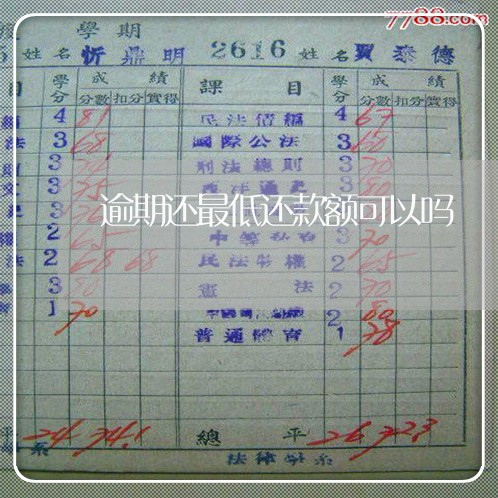 7788.com
學期
姓名 忻鼎明 2616 姓名 賈泰德
目 學分 成績 課目 學分 成績
分數 扣分 實得 分數 扣分 實得
4 81 民法債編 4 67
法 3 68 國際公法 3 60
3 刑法總則 3 70
3 75 西洋通史 3 80
逾期还最低还款额可以吗
2 3 70
法 2 68 68 民法物權 2 65
3 80 憲法 2 70
1 70 2 80
普通體育 1 78
平 24 74.1 總平 26 72.3
系 法律學系